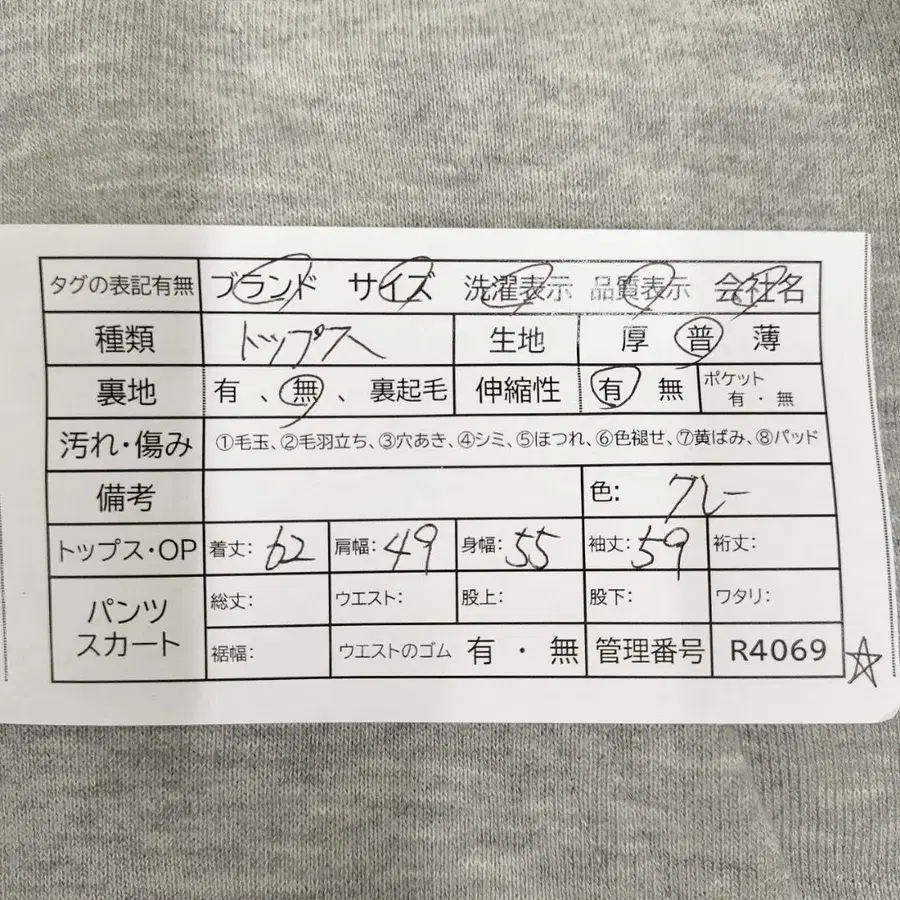 タグの表記有無 ブランド サイズ 洗濯表示 品質表示 会社名
種類 トップス 生地 厚 普 薄
裏地 有、無、裏起毛 伸縮性 有 無 ポケット 有・無
汚れ・傷み ①毛玉、②毛羽立ち、③穴あき、④シミ、⑤ほつれ、⑥色褪せ、⑦黄ばみ、⑧パッド
備考 色: グレー
トップス・OP 着丈: 62 肩幅: 49 身幅: 55 袖丈: 59 裄丈:
パンツ スカート 総丈: ウエスト: 股上: 股下: ワタリ:
裾幅: ウエストのゴム 有・無 管理番号 R4069